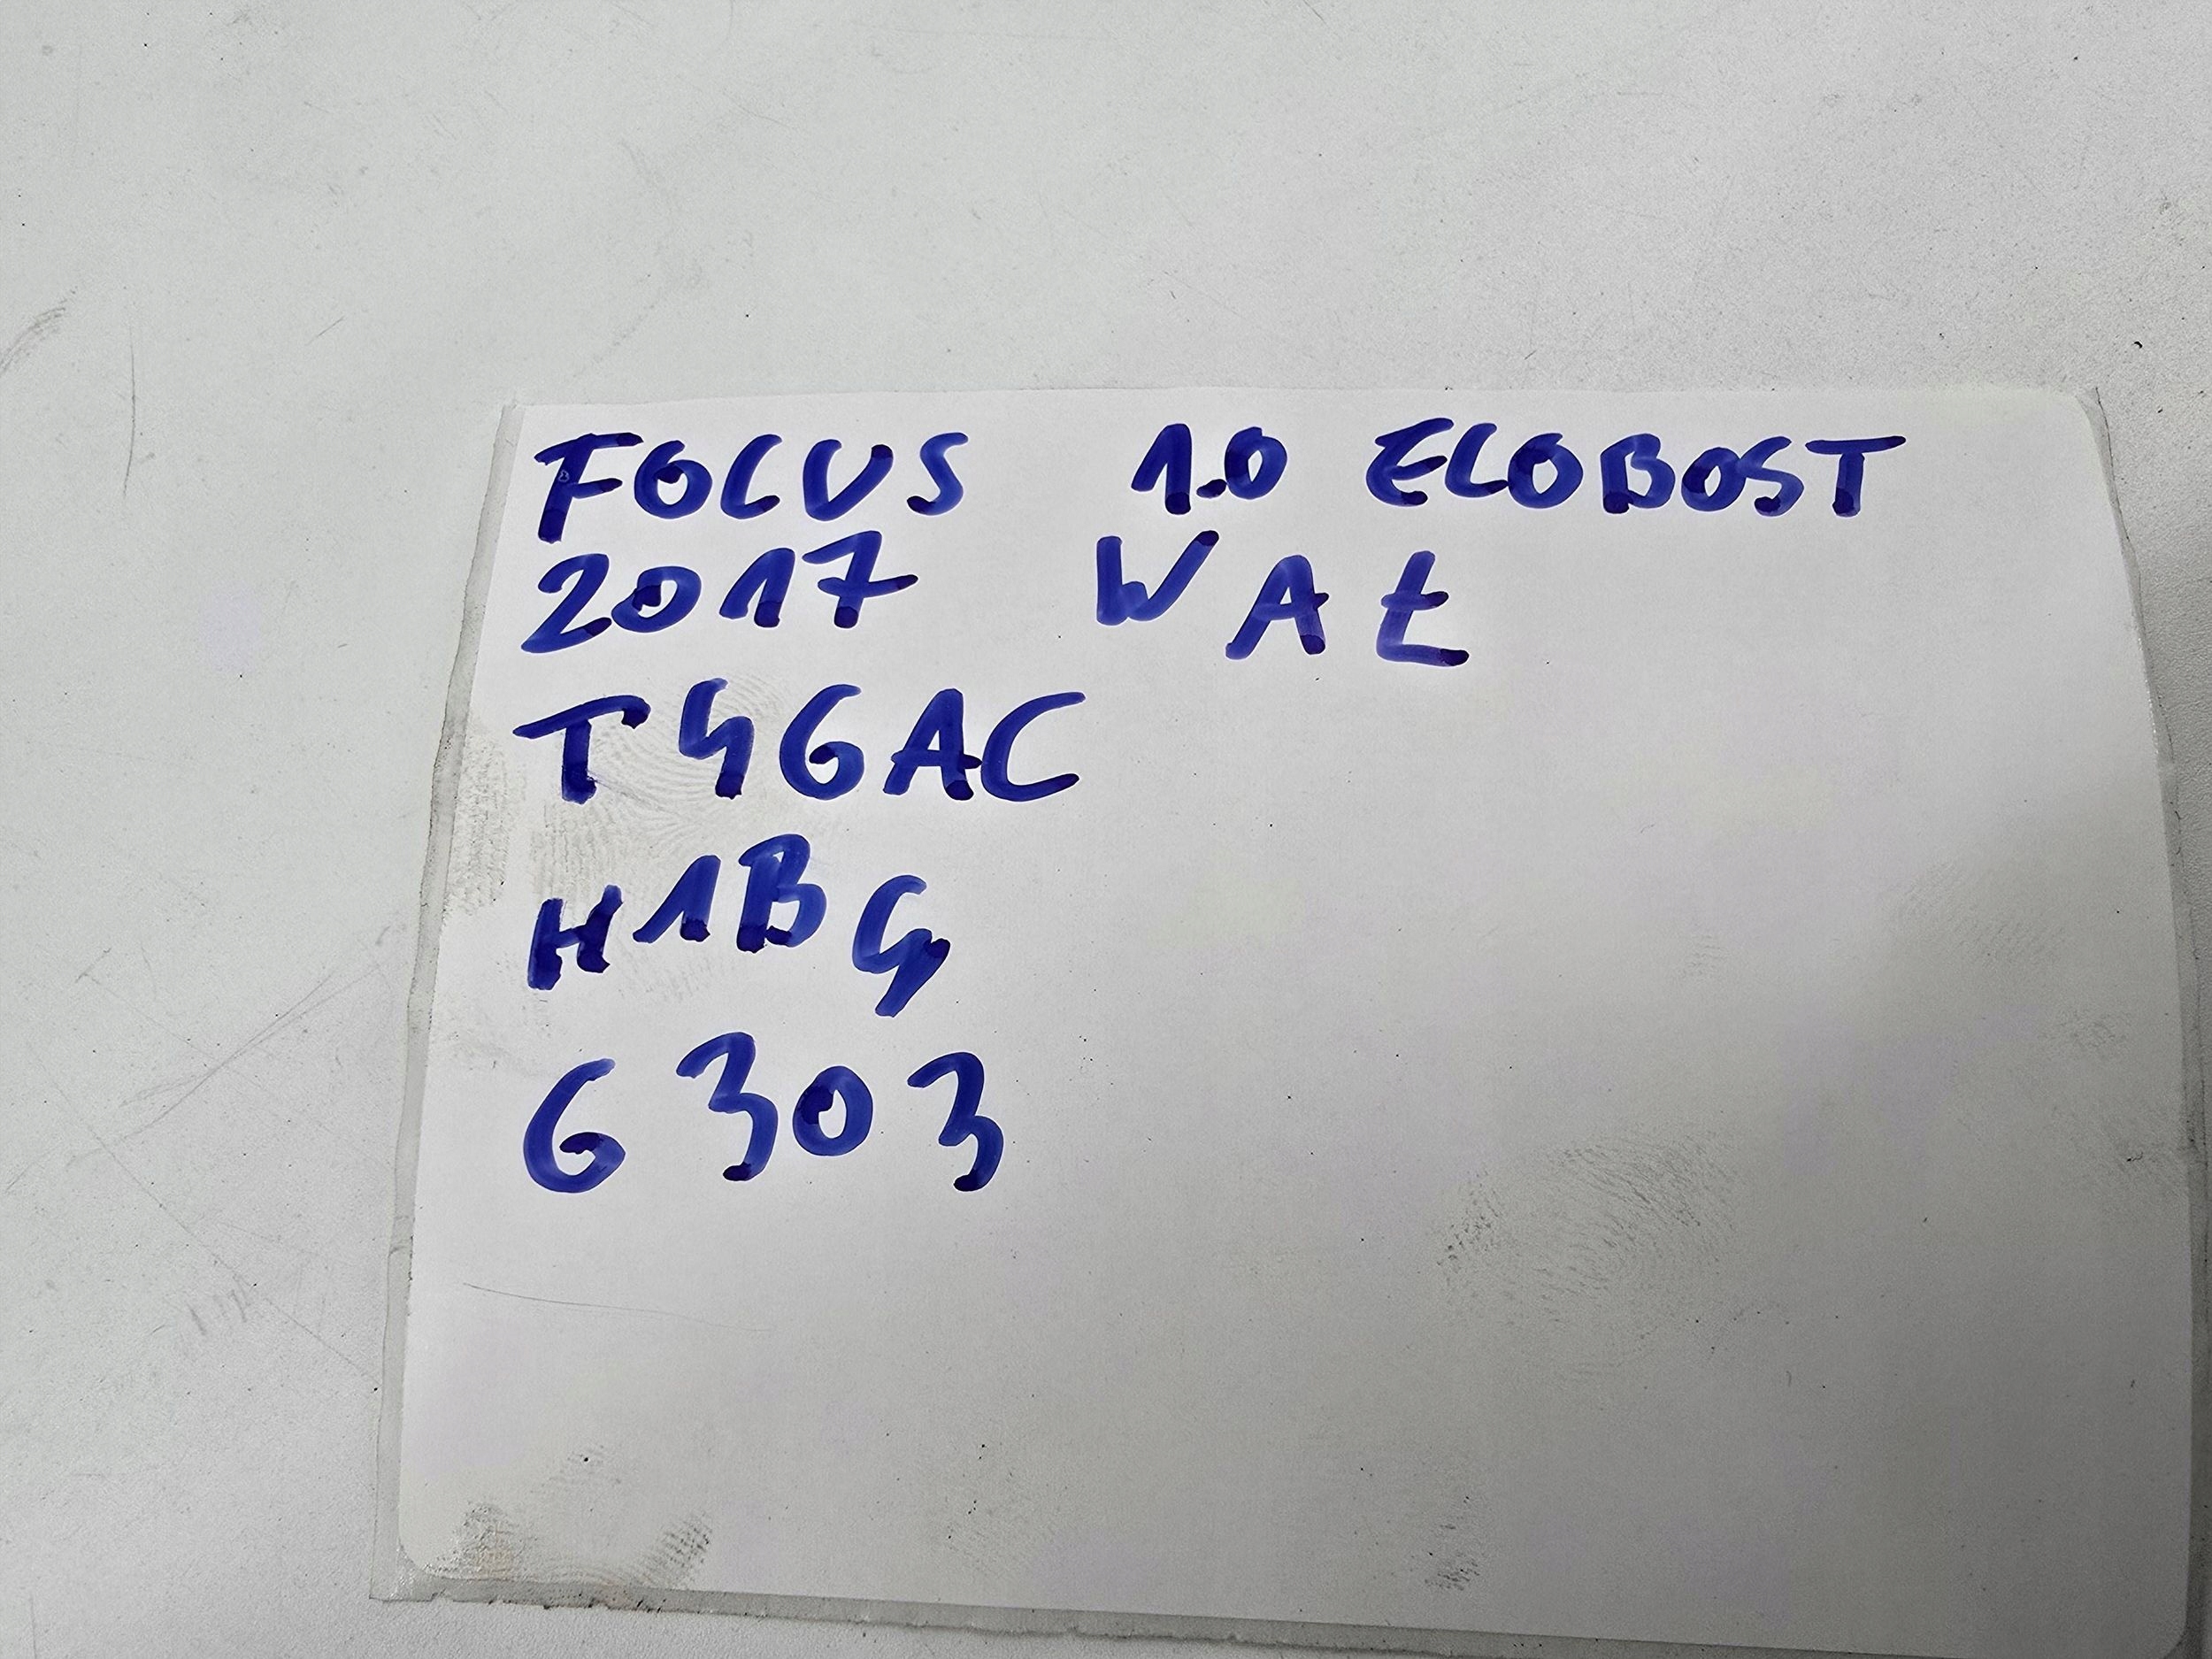 FOCUS 1.0 ECOBOST
2017 WAŁ
T46AC
H1BG
6303